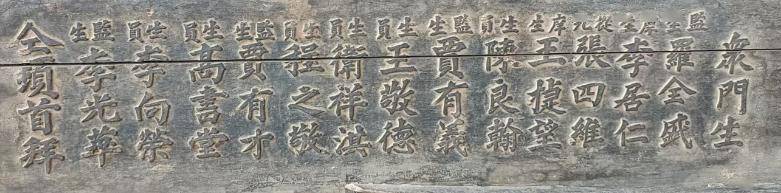 衆門生
監生羅全盛
庠生李居仁
從九張四維
庠生王棫望
生員陳良翰
監生賈有義
生員王敬德
監生衛祥淇
生員程之敬
監生賈有才
生員高書堂
生員李向榮
監生李光華
仝頓首拜